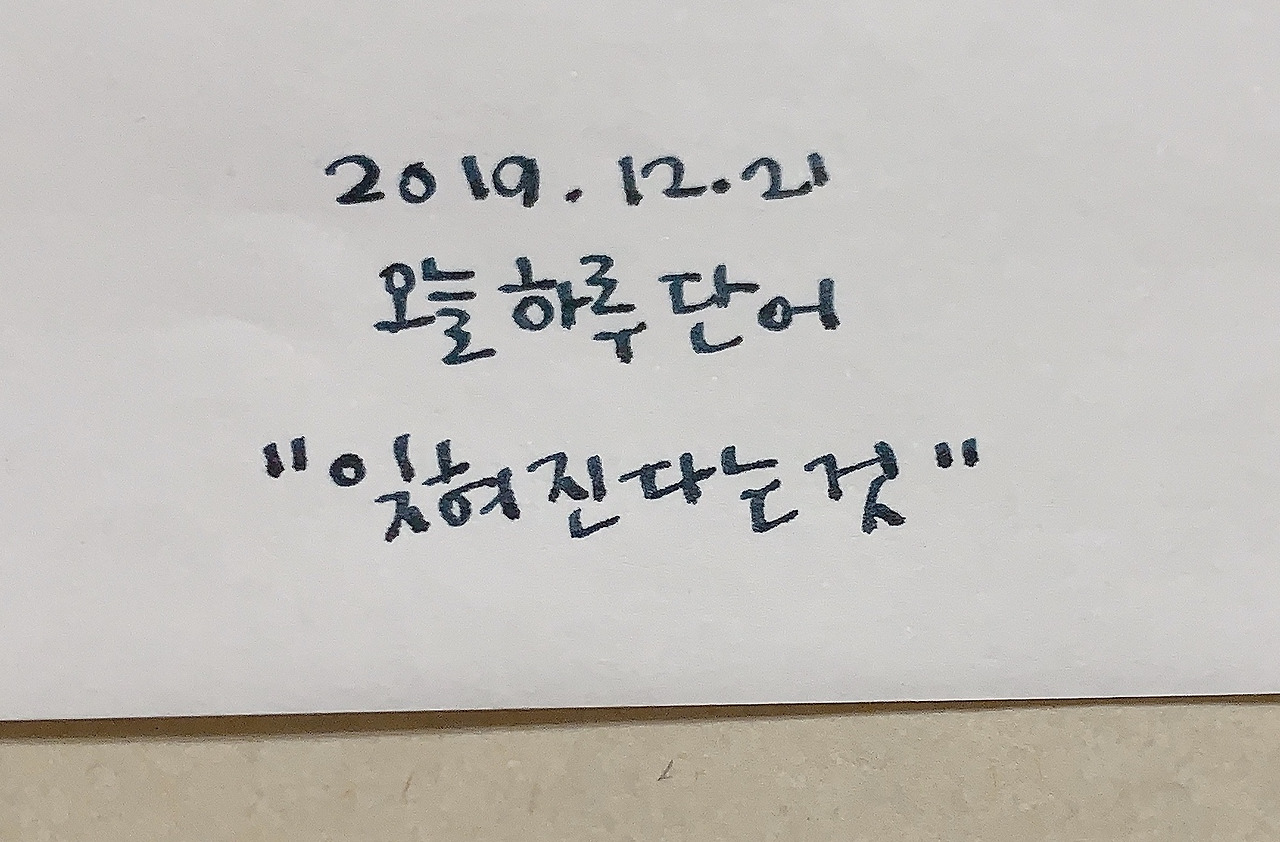 2019.12.21
오늘 하루 단어
"잊혀진다는 것"